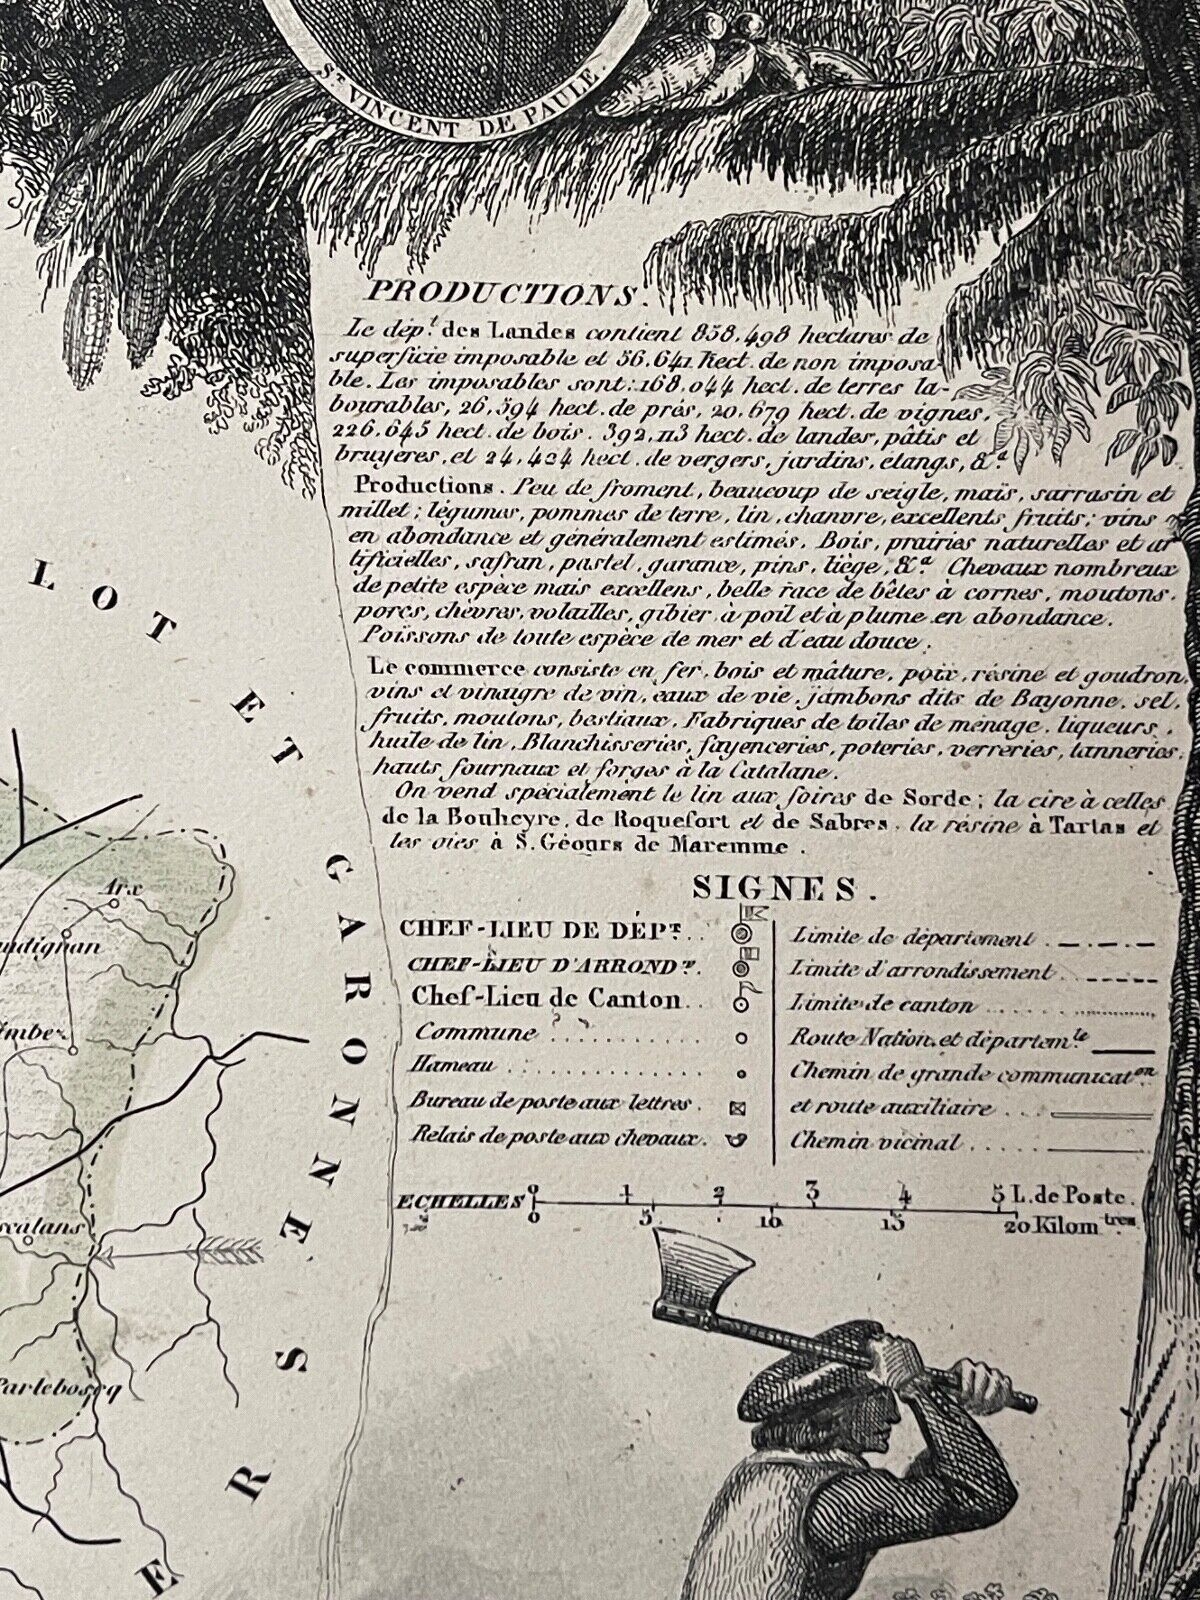 ST. VINCENT DE PAULE.
PRODUCTIONS.
Le dép.t des Landes contient 858,498 hectares de
superficie imposable et 56,641 hect. de non imposa
ble. Les imposables sont: 168,044 hect. de terres la-
bourables, 26,594 hect. de prés, 20,679 hect. de vignes,
226,645 hect. de bois. 392,113 hect. de landes, pâtis et
bruyères, et 24,424 hect. de vergers, jardins, étangs, &a
Productions. Peu de froment, beaucoup de seigle, maïs, sarrasin et
millet; légumes, pommes de terre, lin, chanvre, excellents fruits; vins
en abondance et généralement estimés. Bois, prairies naturelles et ar
tificielles, safran, pastel, garance, pins, liège, &a Chevaux nombreux
de petite espèce mais excellens, belle race de bêtes à cornes, moutons,
porcs, chèvres, volailles, gibier, à poil et à plume en abondance.
Poissons de toute espèce de mer et d'eau douce.
Le commerce consiste en fer, bois et mâture, poix, résine et goudron,
vins et vinaigre de vin, eaux de vie, jambons dits de Bayonne, sel,
fruits, moutons, bestiaux. Fabriques de toiles de ménage, liqueurs,
huile de lin. Blanchisseries, fayenceries, poteries, verreries, tanneries,
hauts fournaux et forges à la Catalane.
On vend spécialement le lin aux foires de Sorde; la cire à celles
de la Bouheyre, de Roquefort et de Sabres, la résine à Tartas et
les oies à S. Géours de Maremme.
SIGNES.
CHEF-LIEU DE DÉPT..
CHEF-LIEU D'ARRONDT.
Chef-Lieu de Canton..
Commune
Hameau
Bureau de poste aux lettres.
Relais de poste aux chevaux.
Limite de département
Limite d'arrondissement
Limite de canton
Route Nation. et départem.le
Chemin de grande communicat.on
et route auxiliaire
Chemin vicinal
ECHELLES
0 1 2 3 4 5 L. de Poste.
0 5 10 15 20 Kilomtres
LOT ET GARONNE
GERS
Arx
Parleboscq